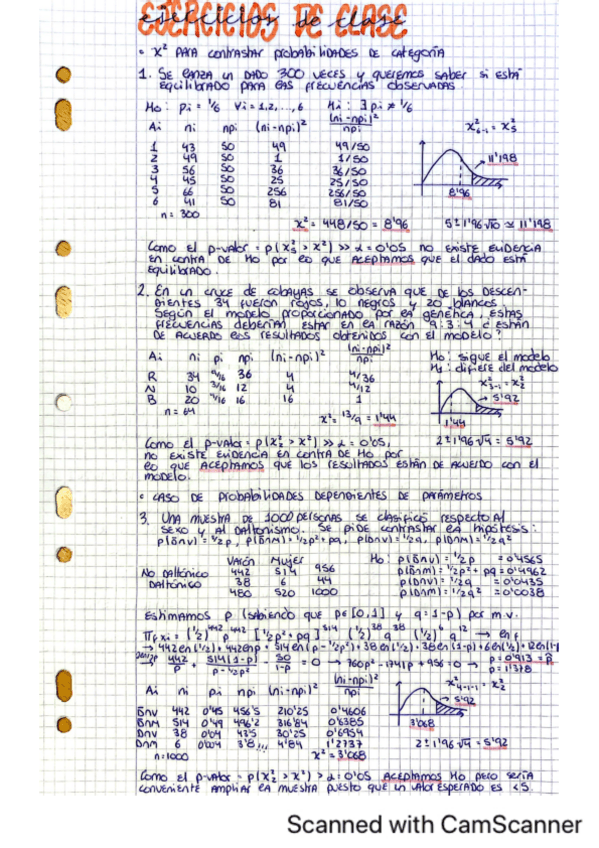 EJERCICIOS DE CLASE
• X² PARA contrastar probabilidades DE categoría
1. SE lanza un DADO 300 VECES y queremos SABER SI está
EQUILIBRADO PARA las frecuencias observadas.
Ho: pi = 1/6 ∀i = 1,2,..., 6 H1: ∃ pi ≠ 1/6
Ai ni npi (ni-npi)² (ni-npi)²/npi X²6-1 = X²5
1 43 50 49 49/50
2 49 50 1 1/50
3 56 50 36 36/50
4 45 50 25 25/50
5 66 50 256 256/50
6 41 50 81 81/50
11'198
8'96
n = 300
X² = 448/50 = 8'96 5±1'96√10 ≃ 11'198
Como el p-valor = p(X²5 > X²) >> α = 0'05 no existe evidencia
en contra de Ho por lo que ACEPTAMOS que el dado está
equilibrado.
2. En un cruce de cobayas se observa que de los descen-
dientes 34 fueron rojos, 10 negros y 20 blancos.
Según el modelo proporcionado por la genética, estas
frecuencias deberían estar en la razón 9:3:4 ¿están
de acuerdo los resultados obtenidos con el modelo?
Ai ni pi npi (ni-npi)² (ni-npi)²/npi
Ho: sigue el modelo
H1: difiere del modelo
R 34 9/16 36 4 4/36
N 10 3/16 12 4 4/12
B 20 4/16 16 16 1
n = 64
X²3-1 = X²2
5'92
1'44
X² = 13/9 = 1'44 2±1'96√4 = 5'92
Como el p-valor = p(X²2 > X²) >> α = 0'05,
no existe evidencia en contra de Ho por
lo que ACEPTAMOS que los resultados están de acuerdo con el
modelo.
• CASO DE probabilidades DEPENDIENTES DE parámetros
3. Una muestra de 1000 personas se clasificó respecto al
sexo y al daltonismo. Se pide contrastar la hipótesis:
p(D̄∩V) = 1/2p, p(D̄∩M) = 1/2p²+pq, p(D∩V) = 1/2q, p(D∩M) = 1/2q²
Varón Mujer
No Daltónico 442 514 956
Daltónico 38 6 44
480 520 1000
Ho: p(D̄∩V) = 1/2p = 0'4565
p(D̄∩M) = 1/2p² + pq = 0'4962
p(D∩V) = 1/2q = 0'0435
p(D∩M) = 1/2q² = 0'0038
Estimamos p (sabiendo que p∈[0,1] y q = 1-p) por m.v.
442/p + 514(1-p)/(p-p²/2) - 50/1-p = 0 → 960p² - 1741p + 956 = 0 → p = 0'913 = p̂
p = 1'378
Ai ni pi npi (ni-npi)² (ni-npi)²/npi
D̄∩V 442 0'45 456'5 210'25 0'4606
D̄∩M 514 0'49 496'2 316'84 0'6385
D∩V 38 0'04 43'5 30'25 0'6954
D∩M 6 0'004 3'8 4'84 1'2737
n = 1000 X² = 3'068
X²4-1-1 = X²2
5'92
3'068
2±1'96√4 = 5'92
Como el p-valor = p(X²2 > X²) > α = 0'05 ACEPTAMOS Ho pero sería
conveniente ampliar la muestra puesto que un valor esperado es < 5.
Scanned with CamScanner